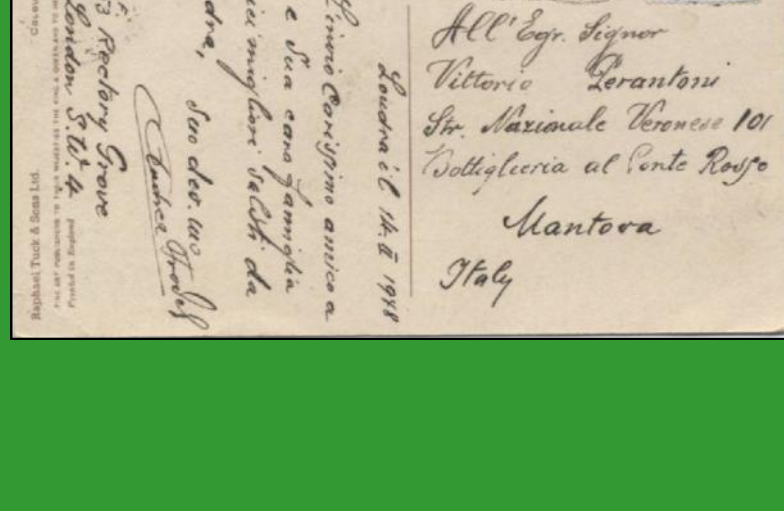 All' Egr. Signor
Vittorio Perantoni
Str. Nazionale Veronese 101
Bottiglieria al Ponte Rosso
Mantova
Italy
Londra il 14. II 1948
Carissimo amico a
e Sua cara famiglia
migliori saluti da
dra,
Suo dev.mo
Andrea
3 Rectory Grove
London S.W. 4
Raphael Tuck & Sons Ltd.
Printed in England